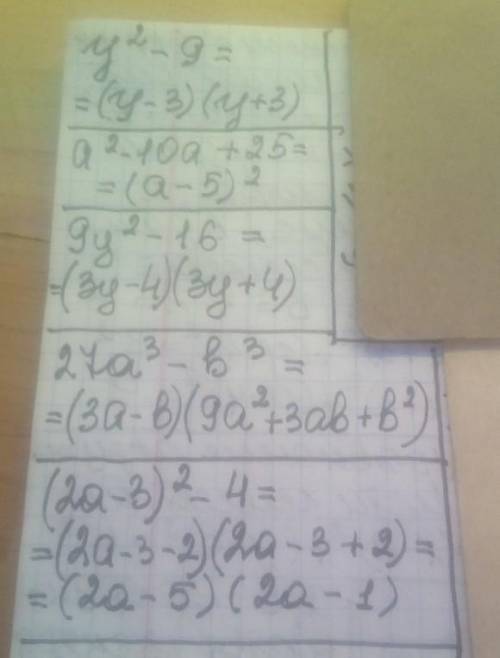 y² - 9 =
= (y - 3) (y + 3)
a² - 10a + 25 =
= (a - 5)²
9y² - 16 =
= (3y - 4)(3y + 4)
27a³ - b³ =
= (3a - b)(9a² + 3ab + b²)
(2a - 3)² - 4 =
= (2a - 3 - 2)(2a - 3 + 2) =
= (2a - 5) (2a - 1)